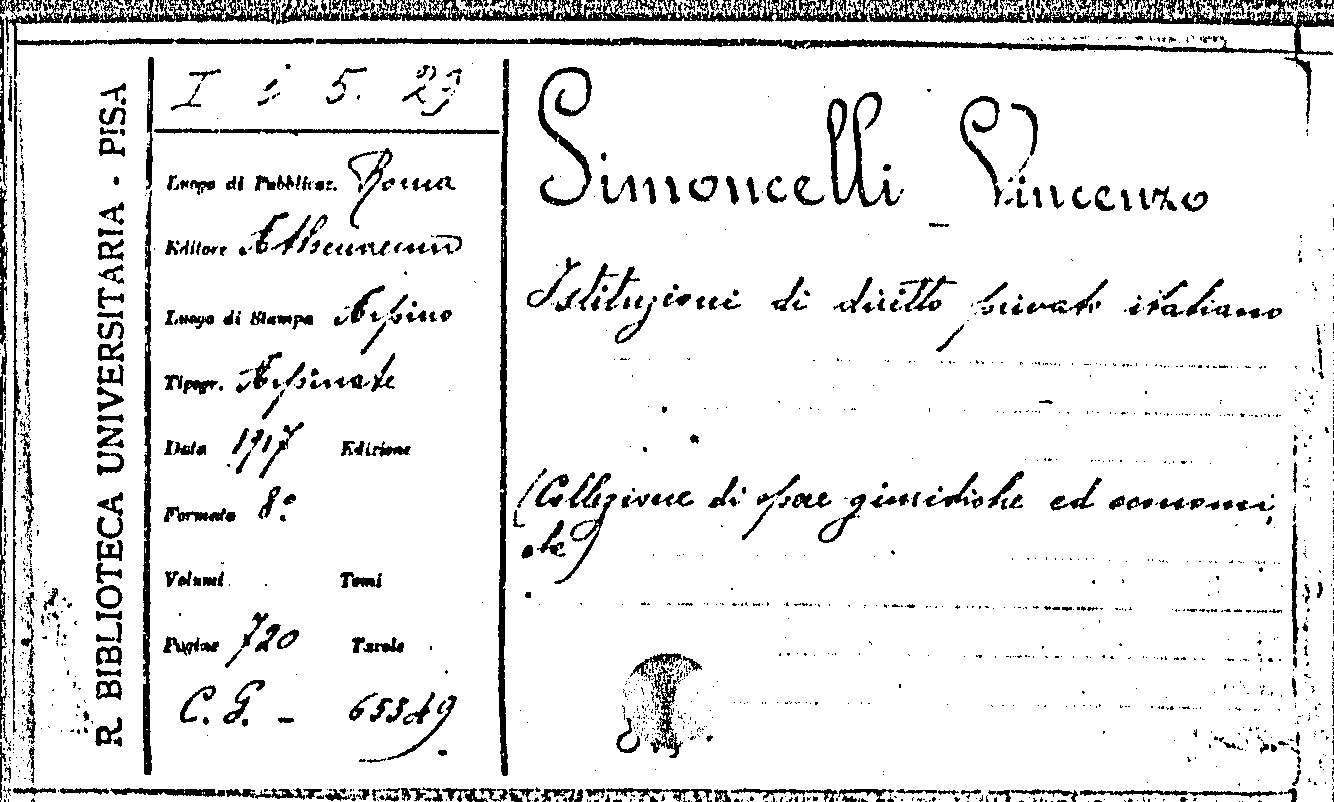 R. BIBLIOTECA UNIVERSITARIA - PISA
I i 5. 27
Luogo di Pubblicaz. Roma
Editore Athenaeum
Luogo di Stampa Arpino
Tipogr. Arpinate
Data 1917 Edizione
Formato 8°
Volumi Tomi
Pagine 720 Tavole
C. G. -
Simoncelli Vincenzo
Istituzioni di diritto privato italiano
(Collezione di opere giuridiche ed economi,
che)